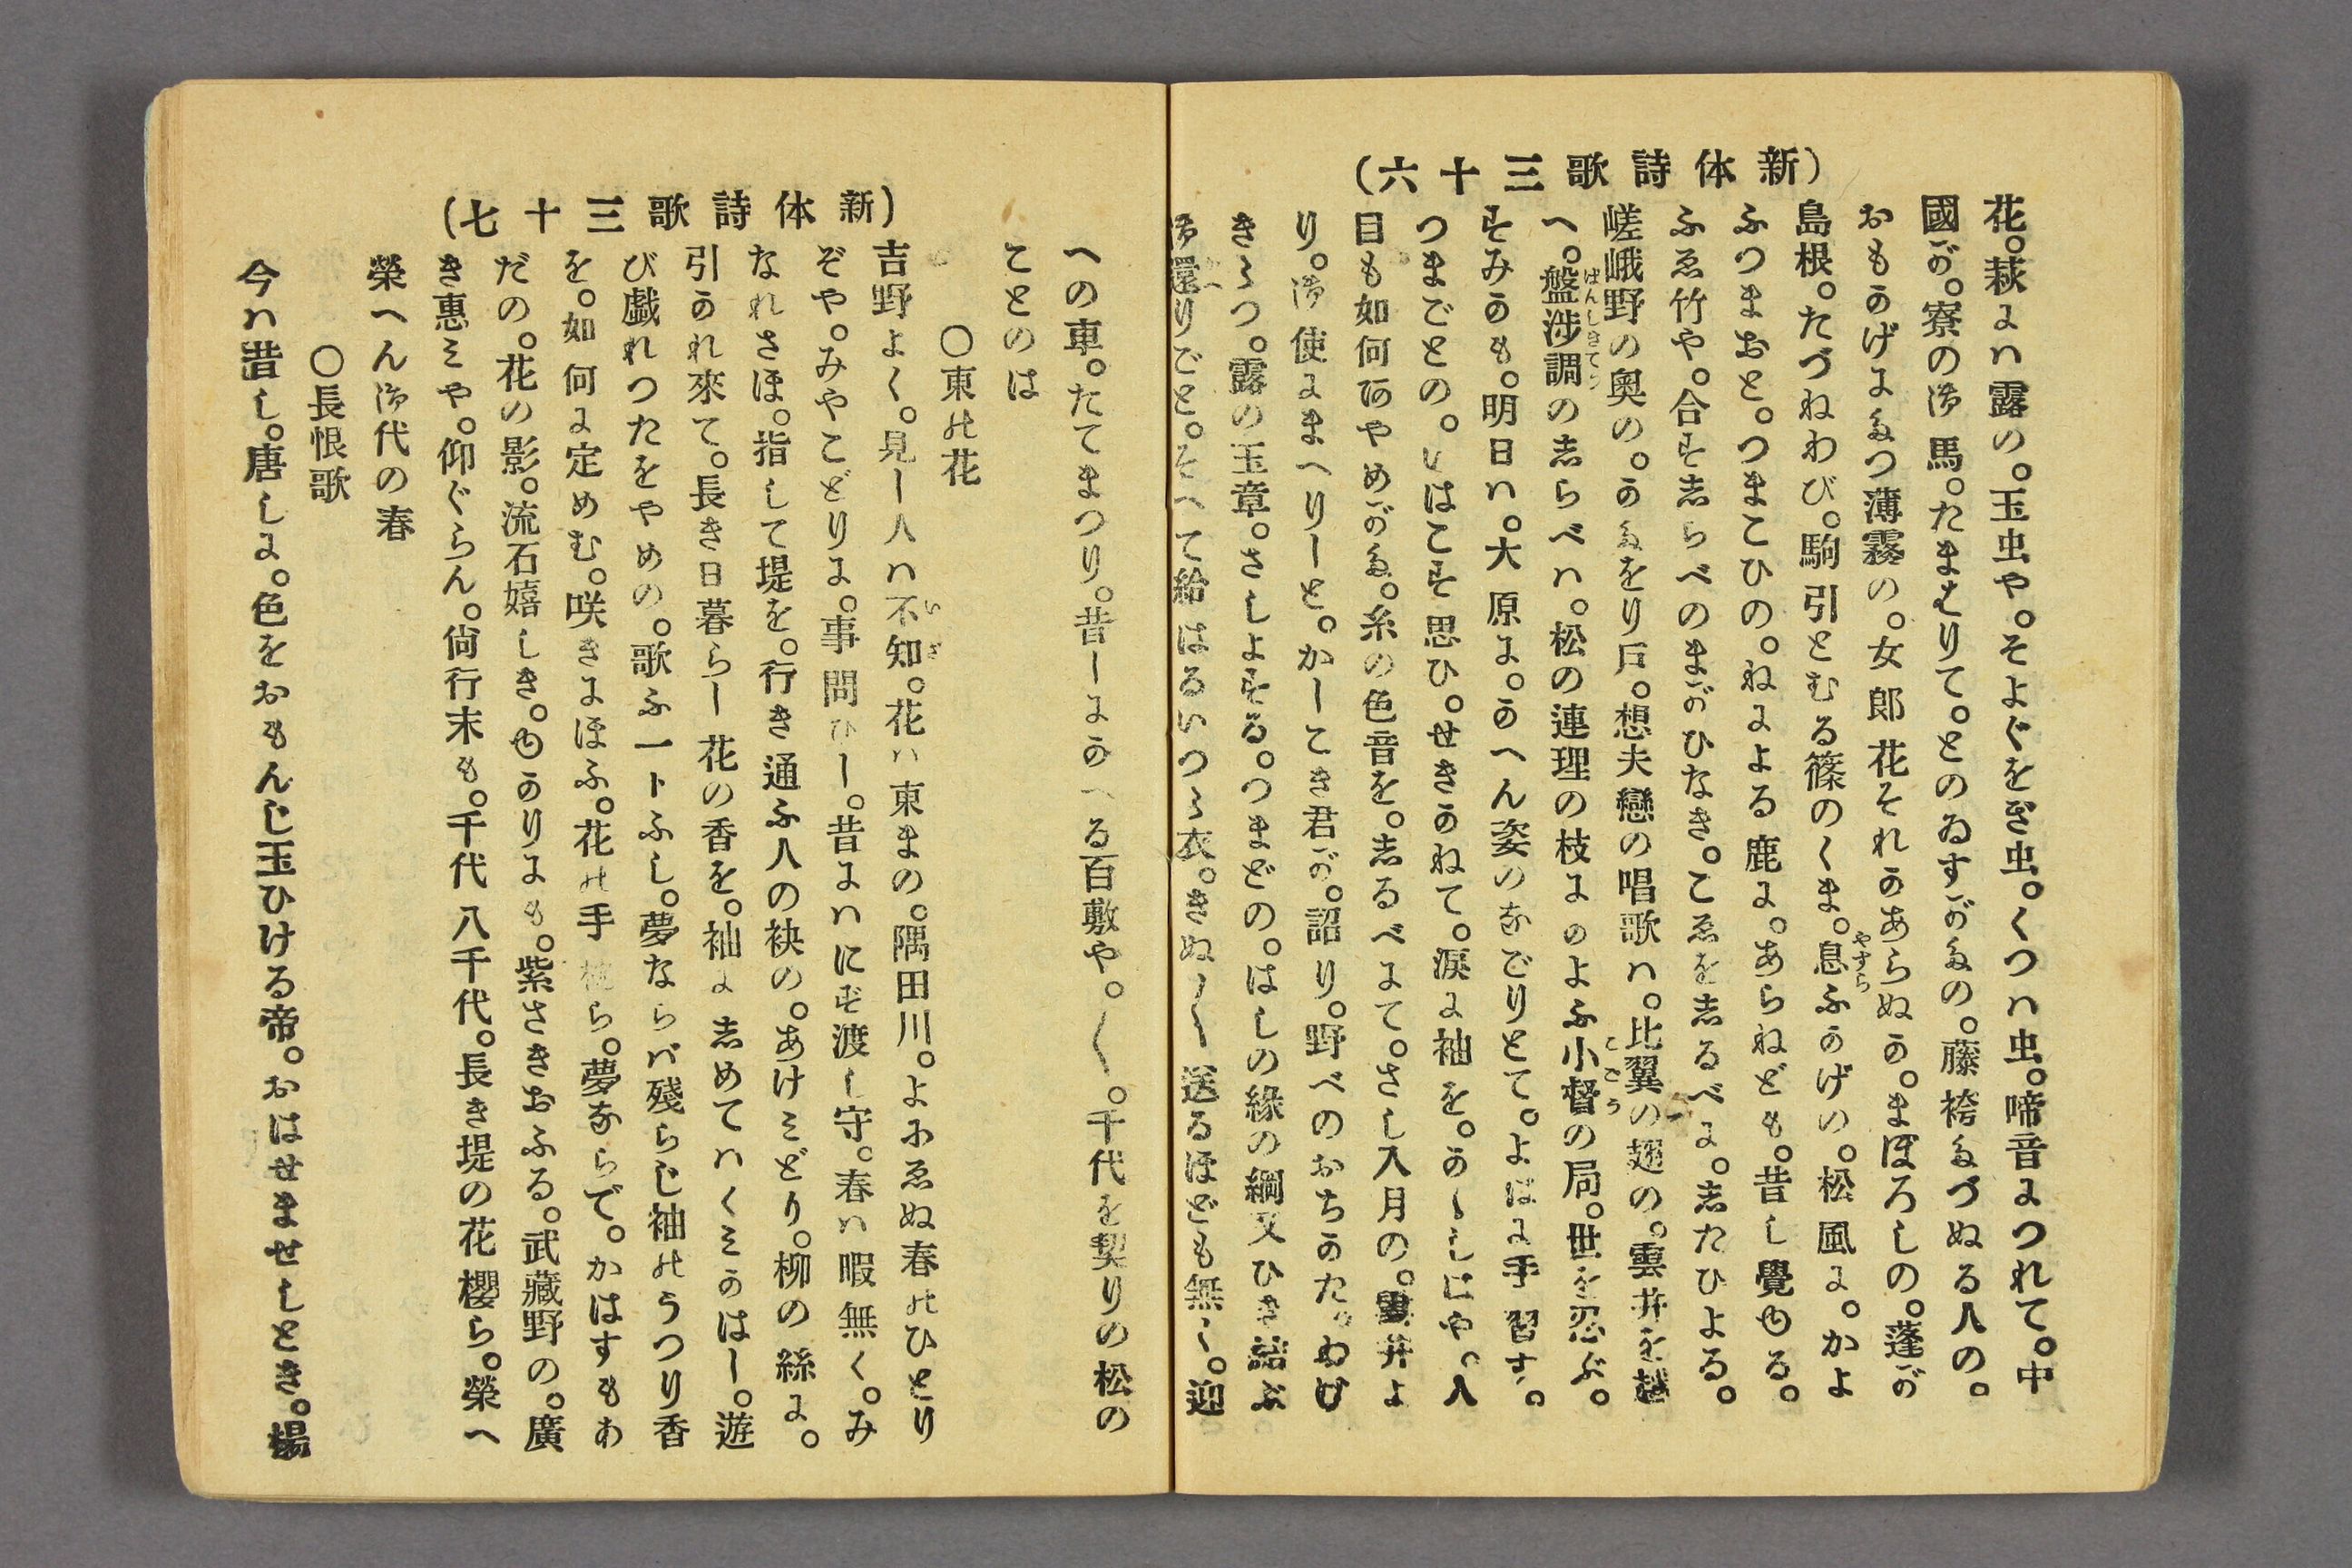 (新体詩歌三十六)
花。萩に八露の。玉虫や。そよぐをぎ虫。くつハ虫。啼音につれて。中
國が。寮の御馬。たまはりて。とのゐすがたの。藤袴たづぬる人の。
おもかげにたつ薄霧の。女郎花それかあらぬか。まぼろしの。蓬が
島根。たづねわび。駒引とむる篠のくま。息ふかげの。松風に。かよ
やすら
ふつまおと。つまこひの。ねによる鹿に。あらねども。昔し覺ゆる。
ふゑ竹や。合す志らべのまがひなき。こゑを志るべに。志たひよる。
嵯峨野の奥の。かたをり戸。想夫戀の唱歌ハ。比翼の翅の。雲井を越
へ。盤渉調の志らべハ。松の連理の枝にかよふ小督の局。世を忍ぶ。
ばんしきてう
ことう
すみかも。明日ハ。大原に。かへん姿のなごりとて。よはに手習す。
つまごとの。いはこす思ひ。せきかねて。涙に袖を。かゝしじや。人
目も如何あやめがた。糸の色音を。志るべにて。さし入月の。雲井よ
り。御使にまへりしと。かしこき君が。詔り。野べのおちかた。わけ
きゝつ。露の玉章。さしよする。つまどの。はしの緣の綱又ひき結ぶ
御還りごと。そへて給はるいつゝ衣。きぬ〱送るほども無く。迎
へ
(新体詩歌三十七)
への車。たてまつり。昔しにかへる百敷や。〱。千代を契りの松の
ことのは
〇東の花
吉野よく。見し人ハ不知。花ハ東まの。隅田川。よにゑぬ春のひとり
いざ
ぞや。みやこどりに。事問ひし。昔にハにず渡し守。春ハ暇無く。み
なれさほ。指して堤を。行き通ふ人の袂の。あけミどり。柳の絲に。
引かれ來て。長き日暮らし花の香を。袖に志めてハくミかはし。遊
び戯れつたをやめの。歌ふ一トふし。夢ならバ殘らじ袖のうつり香
を。如何に定めむ。咲きにほふ。花の手枕ら。夢ならで。かはすもわ
だの。花の影。流石嬉しき。ゆかりにも。紫さきおふる。武藏野の。廣
き惠ミや。仰ぐらん。尙行末も。千代八千代。長き堤の花櫻ら。榮へ
榮へん御代の春
〇長恨歌
今ハ昔し。唐しに。色をおもんじ玉ひける帝。おはせませしとき。楊